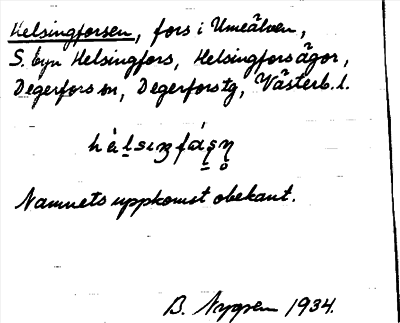 Helsingforsen, fors i Umeälven,
S. byn Helsingfors, Helsingfors ägor,
Degerfors sn, Degerfors tg, Västerb. l.
Namnets uppkomst obekant.
B. Nygren 1934.